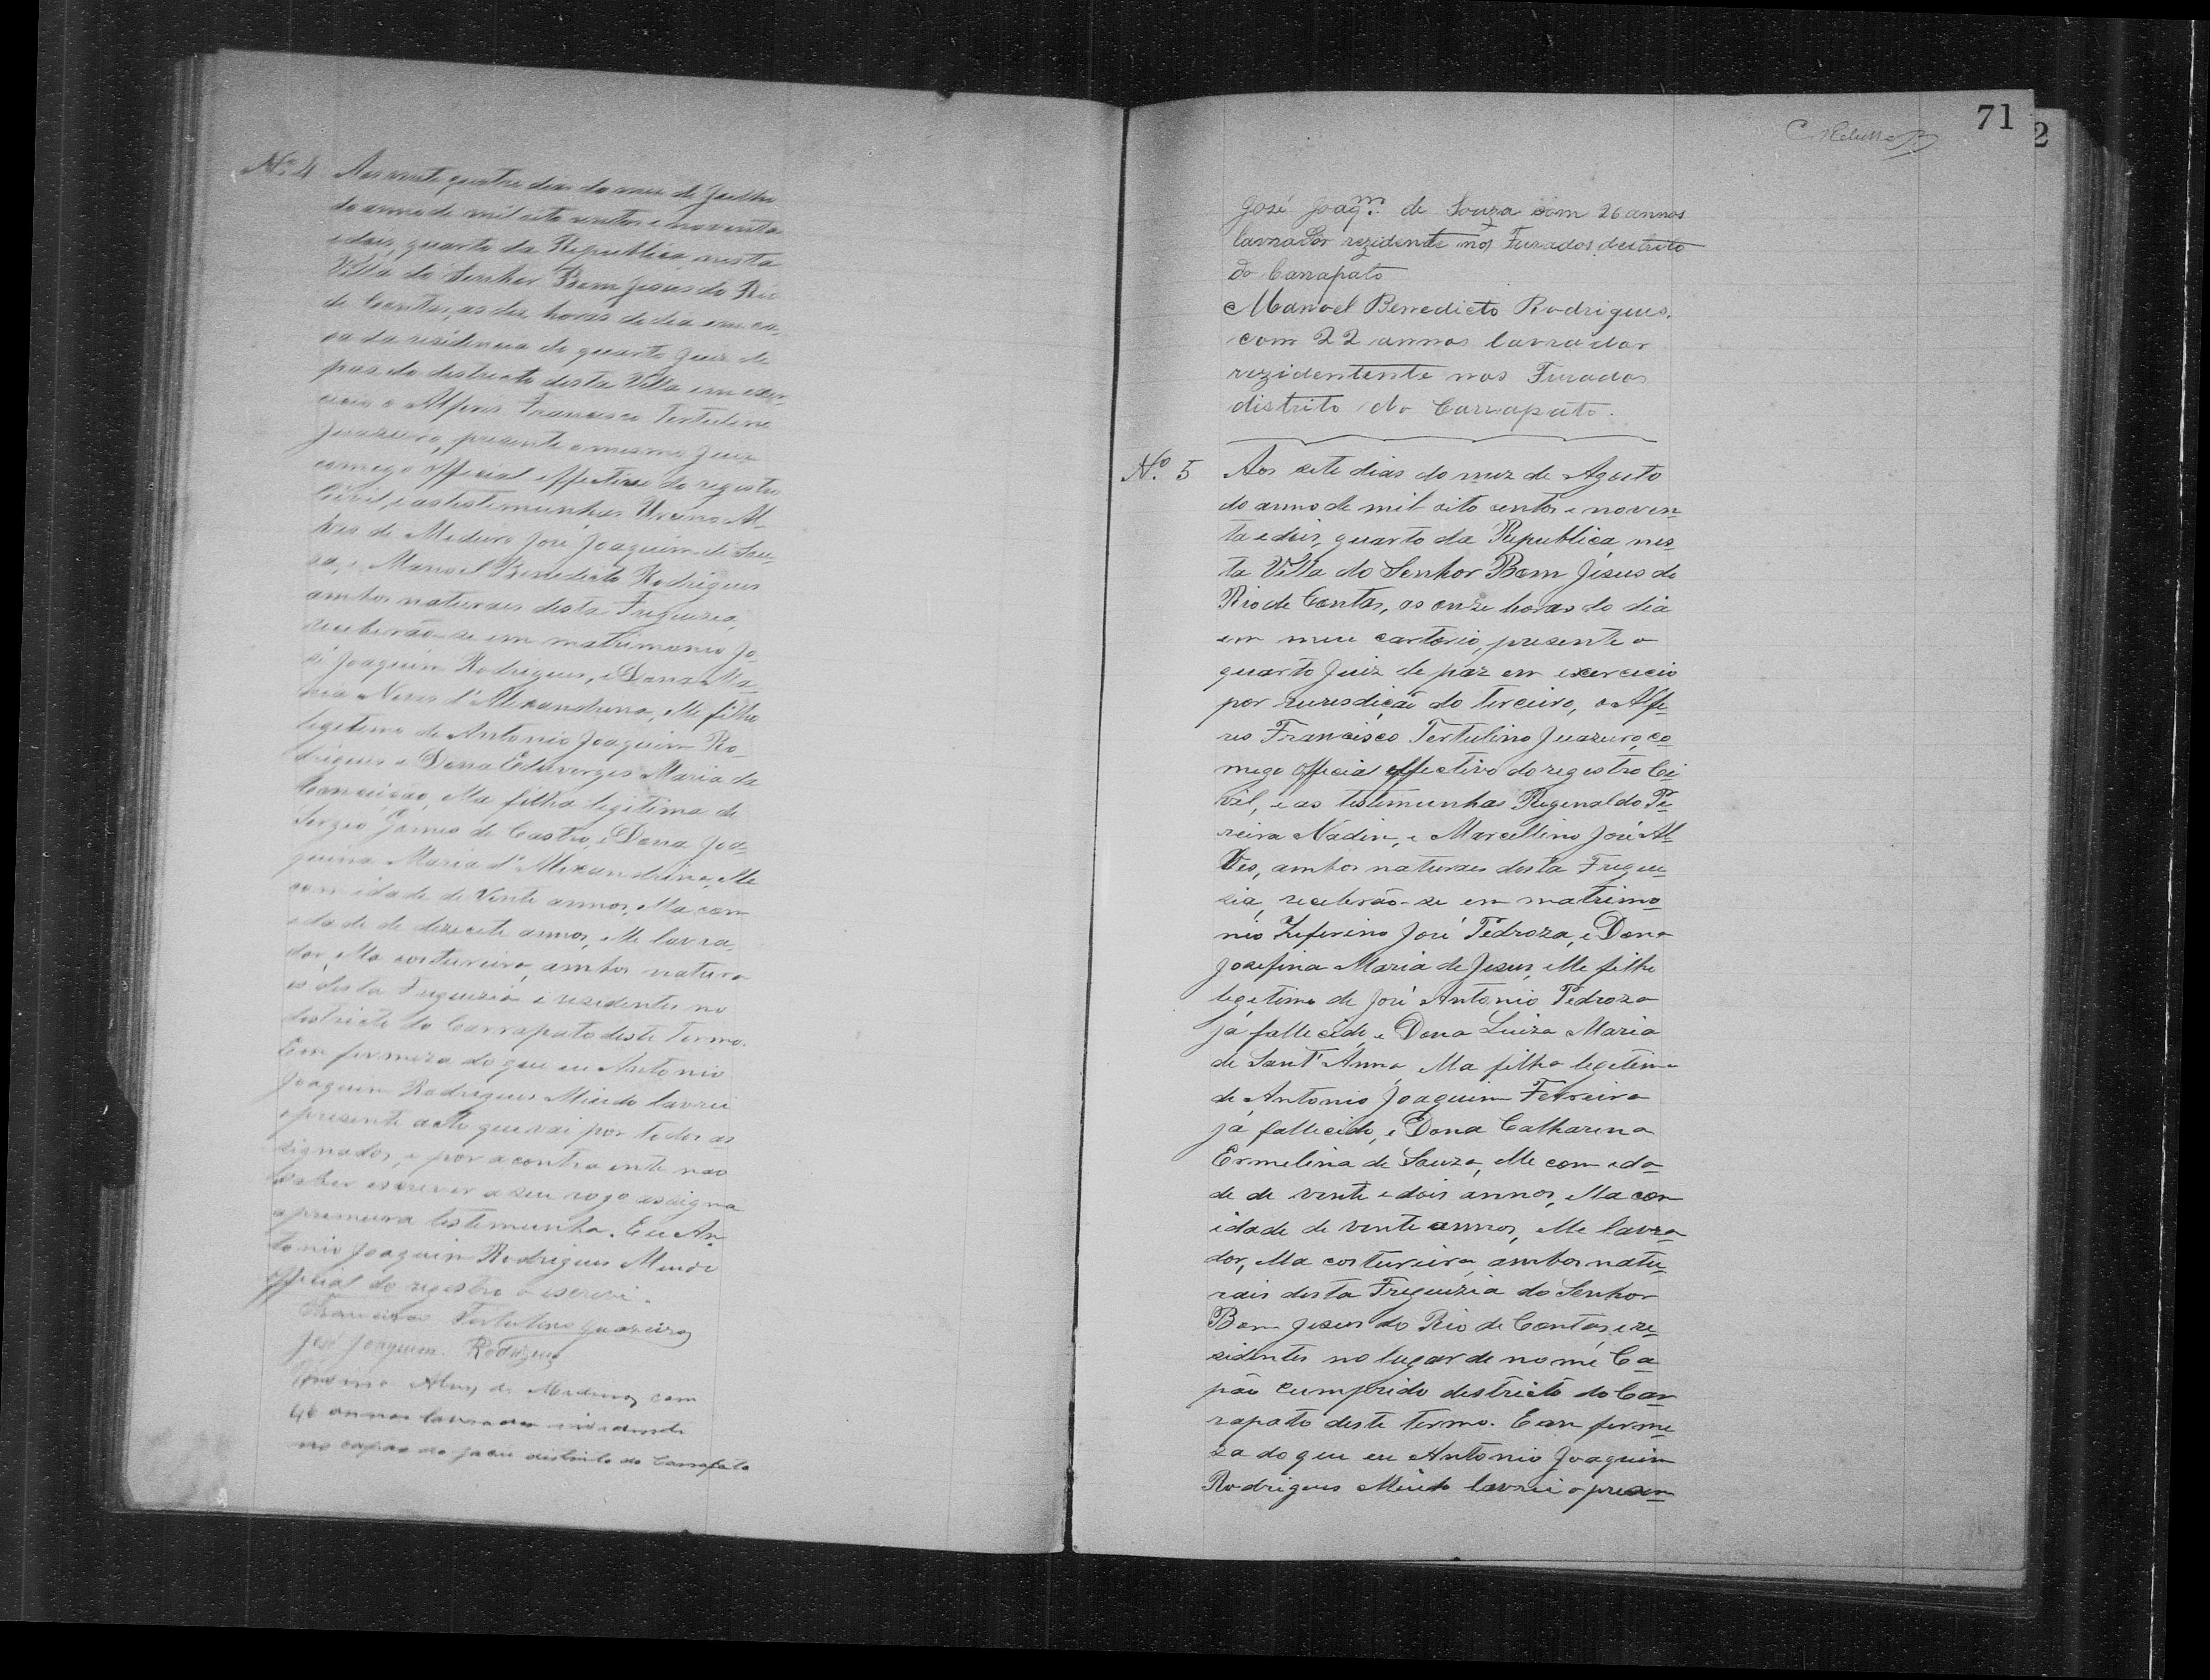 Nº 4 Aos vinte quatro dias do mez de Julho
do anno de mil oito centos e noventa
e dois, quarto da Republica nesta
Villa do Senhor Bom Jesus do Rio
de Contas, as dez horas do dia em ca-
sa da residencia do quarto Juiz de
paz do districto desta Villa em exer-
cicio o Alferes Francisco Tertulino
Juazeiro, presente o mesmo Juiz
comigo official effectivo do registro
Civil, e as testimunhas Al-
ves de Medeiro José Joaquim de Sou-
za, e Manoel Benedicto Rodrigues
ambos naturaes desta Freguezia,
receberão-se em matrimonio Jo-
sé Joaquim Rodrigues, e Dona Ma-
ria Neves d'Alexandrina, elle filho
legitimo de Antonio Joaquim Ro-
drigues e Dona Eduverges Maria da
Conceição, ella filha legitima de
Sergio Gomes de Castro, e Dona Joa-
quina Maria d'Alexandrina, elle
com idade de Vinte annos, ella com
edade de dezecete annos, elle lavra-
dor, ella costureira, ambos natura
es desta Freguezia e rezidentes no
destricto do Carrapato deste termo.
Em firmeza do que eu Antonio
Joaquim Rodrigues Miudo lavrei
o presente acto que vai por todos as
signados, e por a contraente não
saber escrever a seu rogo assigna
a primeira testemunha. Eu An-
tonio Joaquim Rodrigues Miudo
official do registro o escrevi.
Francisco Tertulino Juazeiro
José Joaquim Rodrigues
Alves de Medeiros com
46 annos lavrador rezidente
no capão do jacu distrito do Carrapato
71
2
José Joaqm. de Souza com 26 annos
lavrador rezidente nos Furados destrito
do Carrapato
Manoel Benedicto Rodrigues.
com 22 annos lavrador
rezidentente nos Furados
distrito do Carrapato.
Nº. 5 Aos sete dias do mez de Agosto
do anno de mil oito centos e noven-
ta e dois, quarto da Republica, nes-
ta Villa do Senhor Bom Jesus do
Rio de Contas, as onze horas do dia
em meu cartorio, presente o
quarto Juiz de paz em exercicio
por jurisdição do terceiro, o Alfe-
res Francisco Tertulino Juazeiro, co-
migo official effectivo do registro Ci-
vil, e as testimunhas Regenaldo Pe-
reira Nadin, e Marcellino José Al-
ves, ambos naturaes desta Fregue-
zia, receberão-se em matrimo-
nio Zeferino José Pedroza, e Dona
Josefina Maria de Jesus, elle filho
legetimo de José Antonio Pedroza
já fallecido, e Dona Luiza Maria
de Sant'Anna, ella filha legetima
de Antonio Joaquim Ferreira
já fallecido, e Dona Catharina
Ermelina de Souza, elle com eda-
de de vinte e dois annos, ella com
idade de vinte annos, elle lavra-
dor, ella costureira, ambos natu-
raes desta Freguezia do Senhor
Bom Jesus do Rio de Contas, e re-
sidentes no lugar de nome Ca-
pão cumprido destricto do Car-
rapato deste termo. Em firme-
za do que eu Antonio Joaquim
Rodrigues Miudo lavrei o presen-